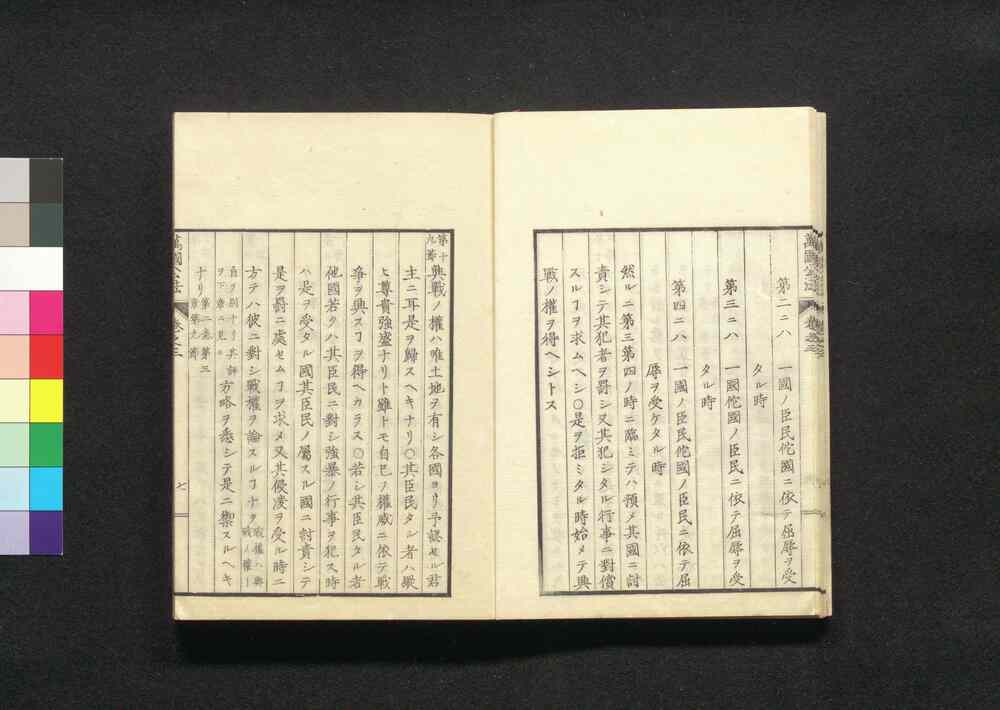 萬國公法
卷之三
第二ニハ 一國ノ臣民佗國ニ依テ屈辱ヲ受
タル時
第三ニハ 一國佗國ノ臣民ニ依テ屈辱ヲ受
タル時
第四ニハ 一國ノ臣民佗國ノ臣民ニ依テ屈
辱ヲ受ケタル時
然ルニ第三第四ノ時ニ臨ミテハ預メ其國ニ討
責シテ其犯者ヲ罰シ又其犯シタル行事ニ對償
スルヿヲ求ムヘシ○是ヲ拒ミタル時始メテ興
戰ノ權ヲ得ヘシトス
第十九節 興戰ノ權ハ唯土地ヲ有シ各國ヨリ予認セル君
主ニ耳是ヲ歸スヘキナリ○其臣民タル者ハ縱
ヒ尊貴強盛ナリト雖トモ自已ヲ權威ニ依テ戰
爭ヲ興スヿヲ得ヘカラス○若シ其臣民タル者
他國若クハ其臣民ニ對シ強暴ノ行事ヲ犯ス時
ハ是ヲ受タル國其臣民ノ屬スル國ニ討責シテ
是ヲ罰ニ處セムヿヲ求メ又其侵凌ヲ受ル時ニ
方テハ彼ニ對シ戰權ヲ論スルヿナク 戰權ハ興
戰ノ權ト
自ラ別ナリ其詳
ヲ下章ニ見ル 方略ヲ悉シテ是ニ禦スルヘキ
ナリ 第二卷第三
章第九節
萬國公法
卷之三
七